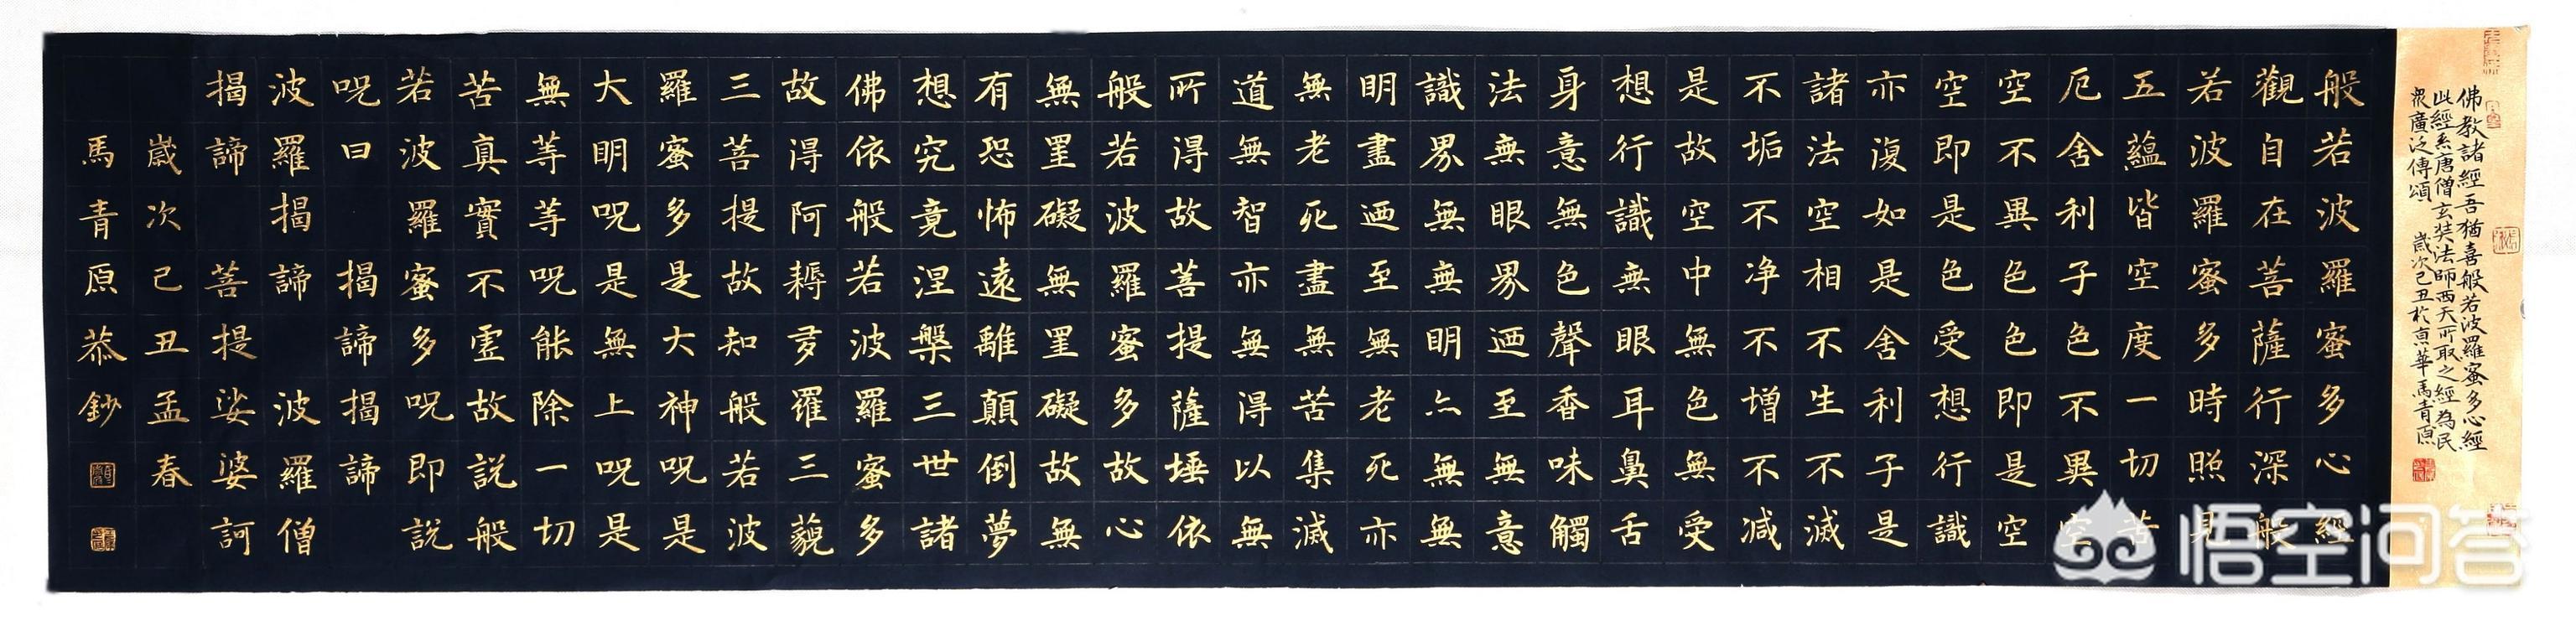 佛教諸經吾猶喜般若波羅蜜多心經
此經系唐僧玄奘法師西天所取之經為民
衆廣泛傳頌 歲次己丑於京華馬青原
般若波羅蜜多心經
觀自在菩薩行深般
若波羅蜜多時照見
五蘊皆空度一切苦
厄舍利子色不異空
空不異色色即是空
空即是色受想行識
亦復如是舍利子是
諸法空相不生不滅
不垢不净不增不减
是故空中無色無受
想行識無眼耳鼻舌
身意無色聲香味觸
法無眼界迺至無意
識界無無明亦無無
明盡迺至無老死亦
無老死盡無苦集滅
道無智亦無得以無
所得故菩提薩埵依
般若波羅蜜多故心
無罣礙無罣礙故無
有恐怖遠離顛倒夢
想究竟涅槃三世諸
佛依般若波羅蜜多
故得阿耨多羅三藐
三菩提故知般若波
羅蜜多是大神呪是
大明呪是無上呪是
無等等呪能除一切
苦真實不虛故説般
若波羅蜜多呪即説
呪曰 揭諦揭諦
波羅揭諦 波羅僧
揭諦 菩提娑婆訶
歲次己丑孟春
馬青原恭鈔
悟空问答